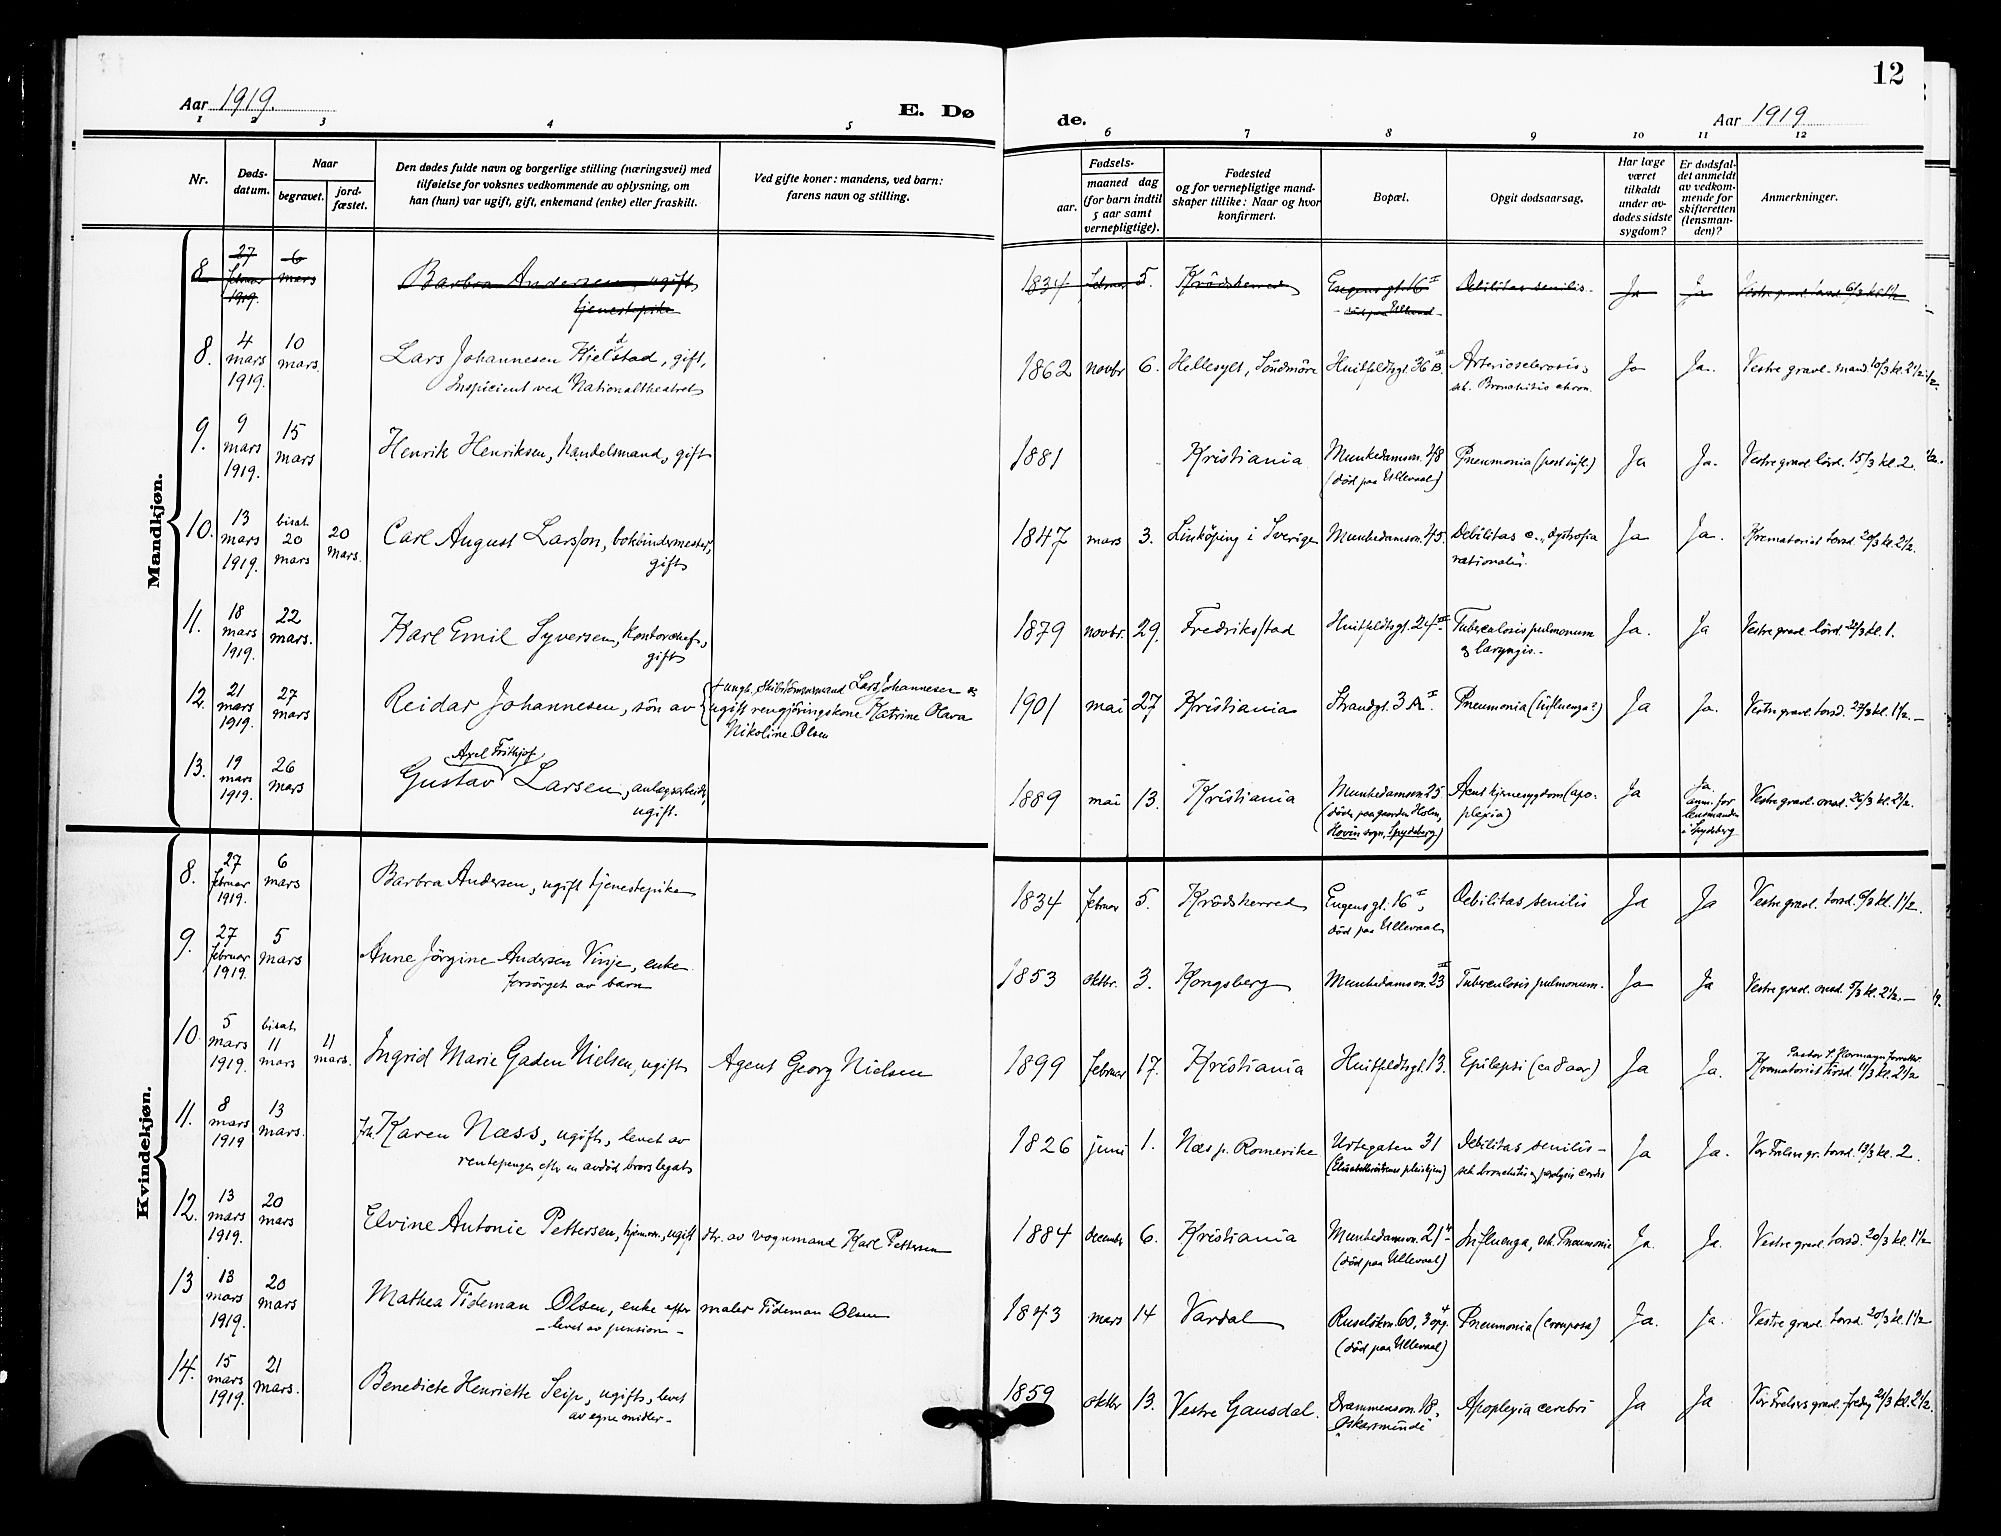 12
Aar 1919.
E. Dø
de.
Aar 1919
1 2 3 4 5 6 7 8 9 10 11 12
Nr.
Døds-
datum.
Naar
begravet.
jord-
fæstet.
Den dødes fulde navn og borgerlige stilling (næringsvei) med
tilføielse for voksnes vedkommende av oplysning, om
han (hun) var ugift, gift, enkemand (enke) eller fraskilt.
Ved gifte koner: mandens, ved barn:
farens navn og stilling.
Fødsels-
aar.
maaned dag
(for barn indtil
5 aar samt
vernepligtige).
Fødested
og for vernepligtige mand-
skaper tillike: Naar og hvor
konfirmert.
Bopæl.
Opgit dødsaarsag.
Har læge
været
tilkaldt
under av-
dødes sidste
sygdom?
Er dødsfal-
det anmeldt
av vedkom-
mende for
skifteretten
(lensman-
den)?
Anmerkninger.
Mandkjøn.
8. 27 februar 1919. 6 mars
Barbra Andersen, ugift
tjenestepike
1834 februar 5. Krödsherred
Eugensgt. 16 II
død paa Ullevaal
Debilitas senilis. Ja Ja Vestre gravl. torsd. 6/3 kl. 1 1/2
8. 4 mars 1919. 10 mars.
Lars Johannesen Kielstad, gift,
d
Inspicient ved Nationaltheatret
1862 novbr 6. Hellesylt, Söndmöre Huitfeldtsgt. 36 B. III
Arteriosclerosis,
sek. Bronchitis chron.
Ja Ja. Vestre gravl. mand. 10/3 kl. 2 1/2.
9. 9 mars 1919. 15 mars
Henrik Henriksen, handelsmand, gift
1881 Kristiania
Munkedamsvn. 48
(død paa Ullevaal)
Pneumonia (post infl.) Ja Ja. Vestre gravl. lörd. 15/3 kl. 2.
10. 13 mars 1919. bisat 20 mars 20 mars.
Carl August Larsson, bokbindermester,
gift
1847 mars 3. Linköping i Sverige Munkedamsvn. 45.
Debilitas c. "dystrofia
rationalis".
Ja Ja. Krematoriet torsd. 20/3 kl. 2 1/2.
11. 18 mars 1919. 22 mars.
Karl Emil Syversen, kontorchef,
gift
1879 novbr. 29. Fredriksstad Huitfeldtsgt. 24 III
Tuberculosis pulmonum
og laryngis.
Ja. Ja Vestre gravl. lörd. 22/3 kl. 1.
12. 21 mars 1919. 27 mars
Reidar Johannesen, sön av
ungk. skibstömmermand Lars Johannesen og
ugift rengjöringskone Katrine Olava
Nikoline Olsen
1901 mai 27 Kristiania Strandgt. 3 A II. Pneumonia (influenza?) Ja Ja. Vestre gravl. torsd. 27/3 kl. 1 1/2.
13. 19 mars 1919. 26 mars
Axel Frithjof
Gustav Larsen, anlægsarbeider,
ugift.
1889 mai 13. Kristiania
Munkedamsvn. 25
(døde paa gaarden Holm,
Hovin sogn, Spydeberg)
Acut hjernesygdom (apo-
plexia)
Ja
Ja.
anm. for
lensmanden
i Spydeberg
Vestre gravl. onsd. 26/3 kl. 2 1/2.
Kvindekjøn.
8. 27 februar 1919. 6 mars
Barbra Andersen, ugift tjenestepike
1834 februar 5. Krödsherred
Eugensgt. 16 I,
død paa Ullevaal
Debilitas senilis Ja Ja Vestre gravl. torsd. 6/3 kl. 1 1/2.
9. 27 februar 1919. 5 mars
Anne Jörgine Andersen Vinje, enke
forsörget av barn
1853 oktbr. 3. Kongsberg Munkedamsvn. 23 III Tuberculosis pulmonum. Ja Ja Vestre gravl. onsd. 5/3 kl. 2 1/2.
10. 5 mars 1919. bisat 11 mars 11 mars.
Ingrid Marie Gaden Nielsen, ugift Agent Georg Nielsen
1899 februar 17. Kristiania Huitfeldtsgt. 13. Epilepsi (ca 8 aar) Ja Ja.
Krematoriet tirsd. 11/3 kl. 2 1/2
11. 8 mars 1919 13 mars.
Frk. Karen Næss, ugift, levet av
rentepenger efter en avdød brors legat
1826 juni 1. Næs p. Romerike
Urtegaten 31
Debilitas senilis
sek. bronchitis og paralysis cordis
Ja Ja. Vor Frelsers gr. torsd. 13/3 kl. 2.
12. 13 mars 1919. 20 mars
Elvine Antonie Pettersen, hjemmev., ugift dtr. av vognmand Karl Pettersen
1884 december 6. Kristiania
Munkedamsvn. 21 4
(død paa Ullevaal)
Influenza, sek. Pneumonie Ja. Ja. Vestre gravl. torsd. 20/3 kl. 1 1/2
13 13 mars 1919. 20 mars
Mathea Tideman Olsen, enke efter maler Tideman Olsen
- levet av pension -
1843 mars 14 Vardal
Ruselökvn. 60, 3 opg. 4
(død paa Ullevaal)
Pneumonia (crouposa) Ja. Ja. Vestre gravl. torsd. 20/3 kl. 1 1/2
14. 15 mars 1919. 21 mars.
Benedicte Henriette Seip, ugift, levet
av egne midler
1859 oktbr 13. Vestre Gausdal.
Drammensvn. 18,
"Oskarsminde"
Apoplexia cerebri Ja Ja Vor Frelsers gravl. fredag 21/3 kl. 2 1/2.